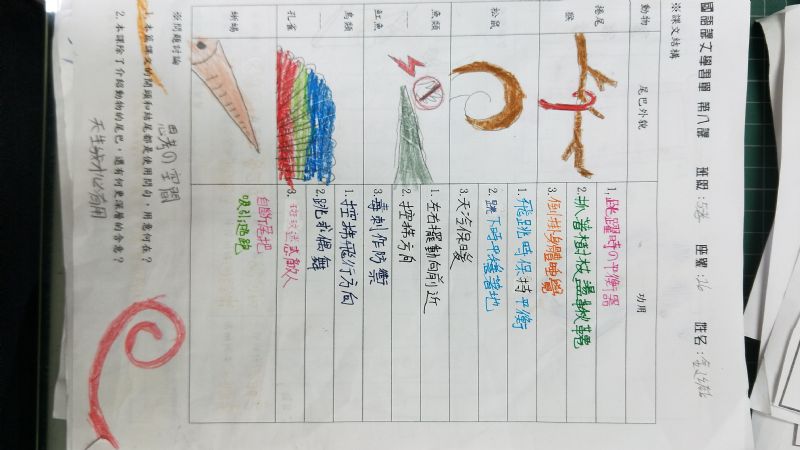 國語課文學習單 第八課 班凹：5年 座號：26 姓名：
※課文結構
動物 尾巴外貌 功用
捲尾猴
1.跳躍時の平衡器
2.抓著樹枝盪鞦韆
3.倒掛身體睡覺
松鼠
1.飛跳時保持平衡
2.跳下時平穩著地
3.天冷保暖
魚類
1.左右擺動向前近
2.控挤方向
魟魚
3.毒刺作防衛
鳥類
1.控挤飛行方向
2.跳求偶舞
孔雀
3.迷惑敵人
蜥蜴
自斷尾把
吸引逃跑
※問題討論
1.本篇課文的開頭和結尾都是使用問句，用意何在？
思考の空間
2.本課除了介紹動物的尾巴，還有何更深層的含意？
天生我才必有用